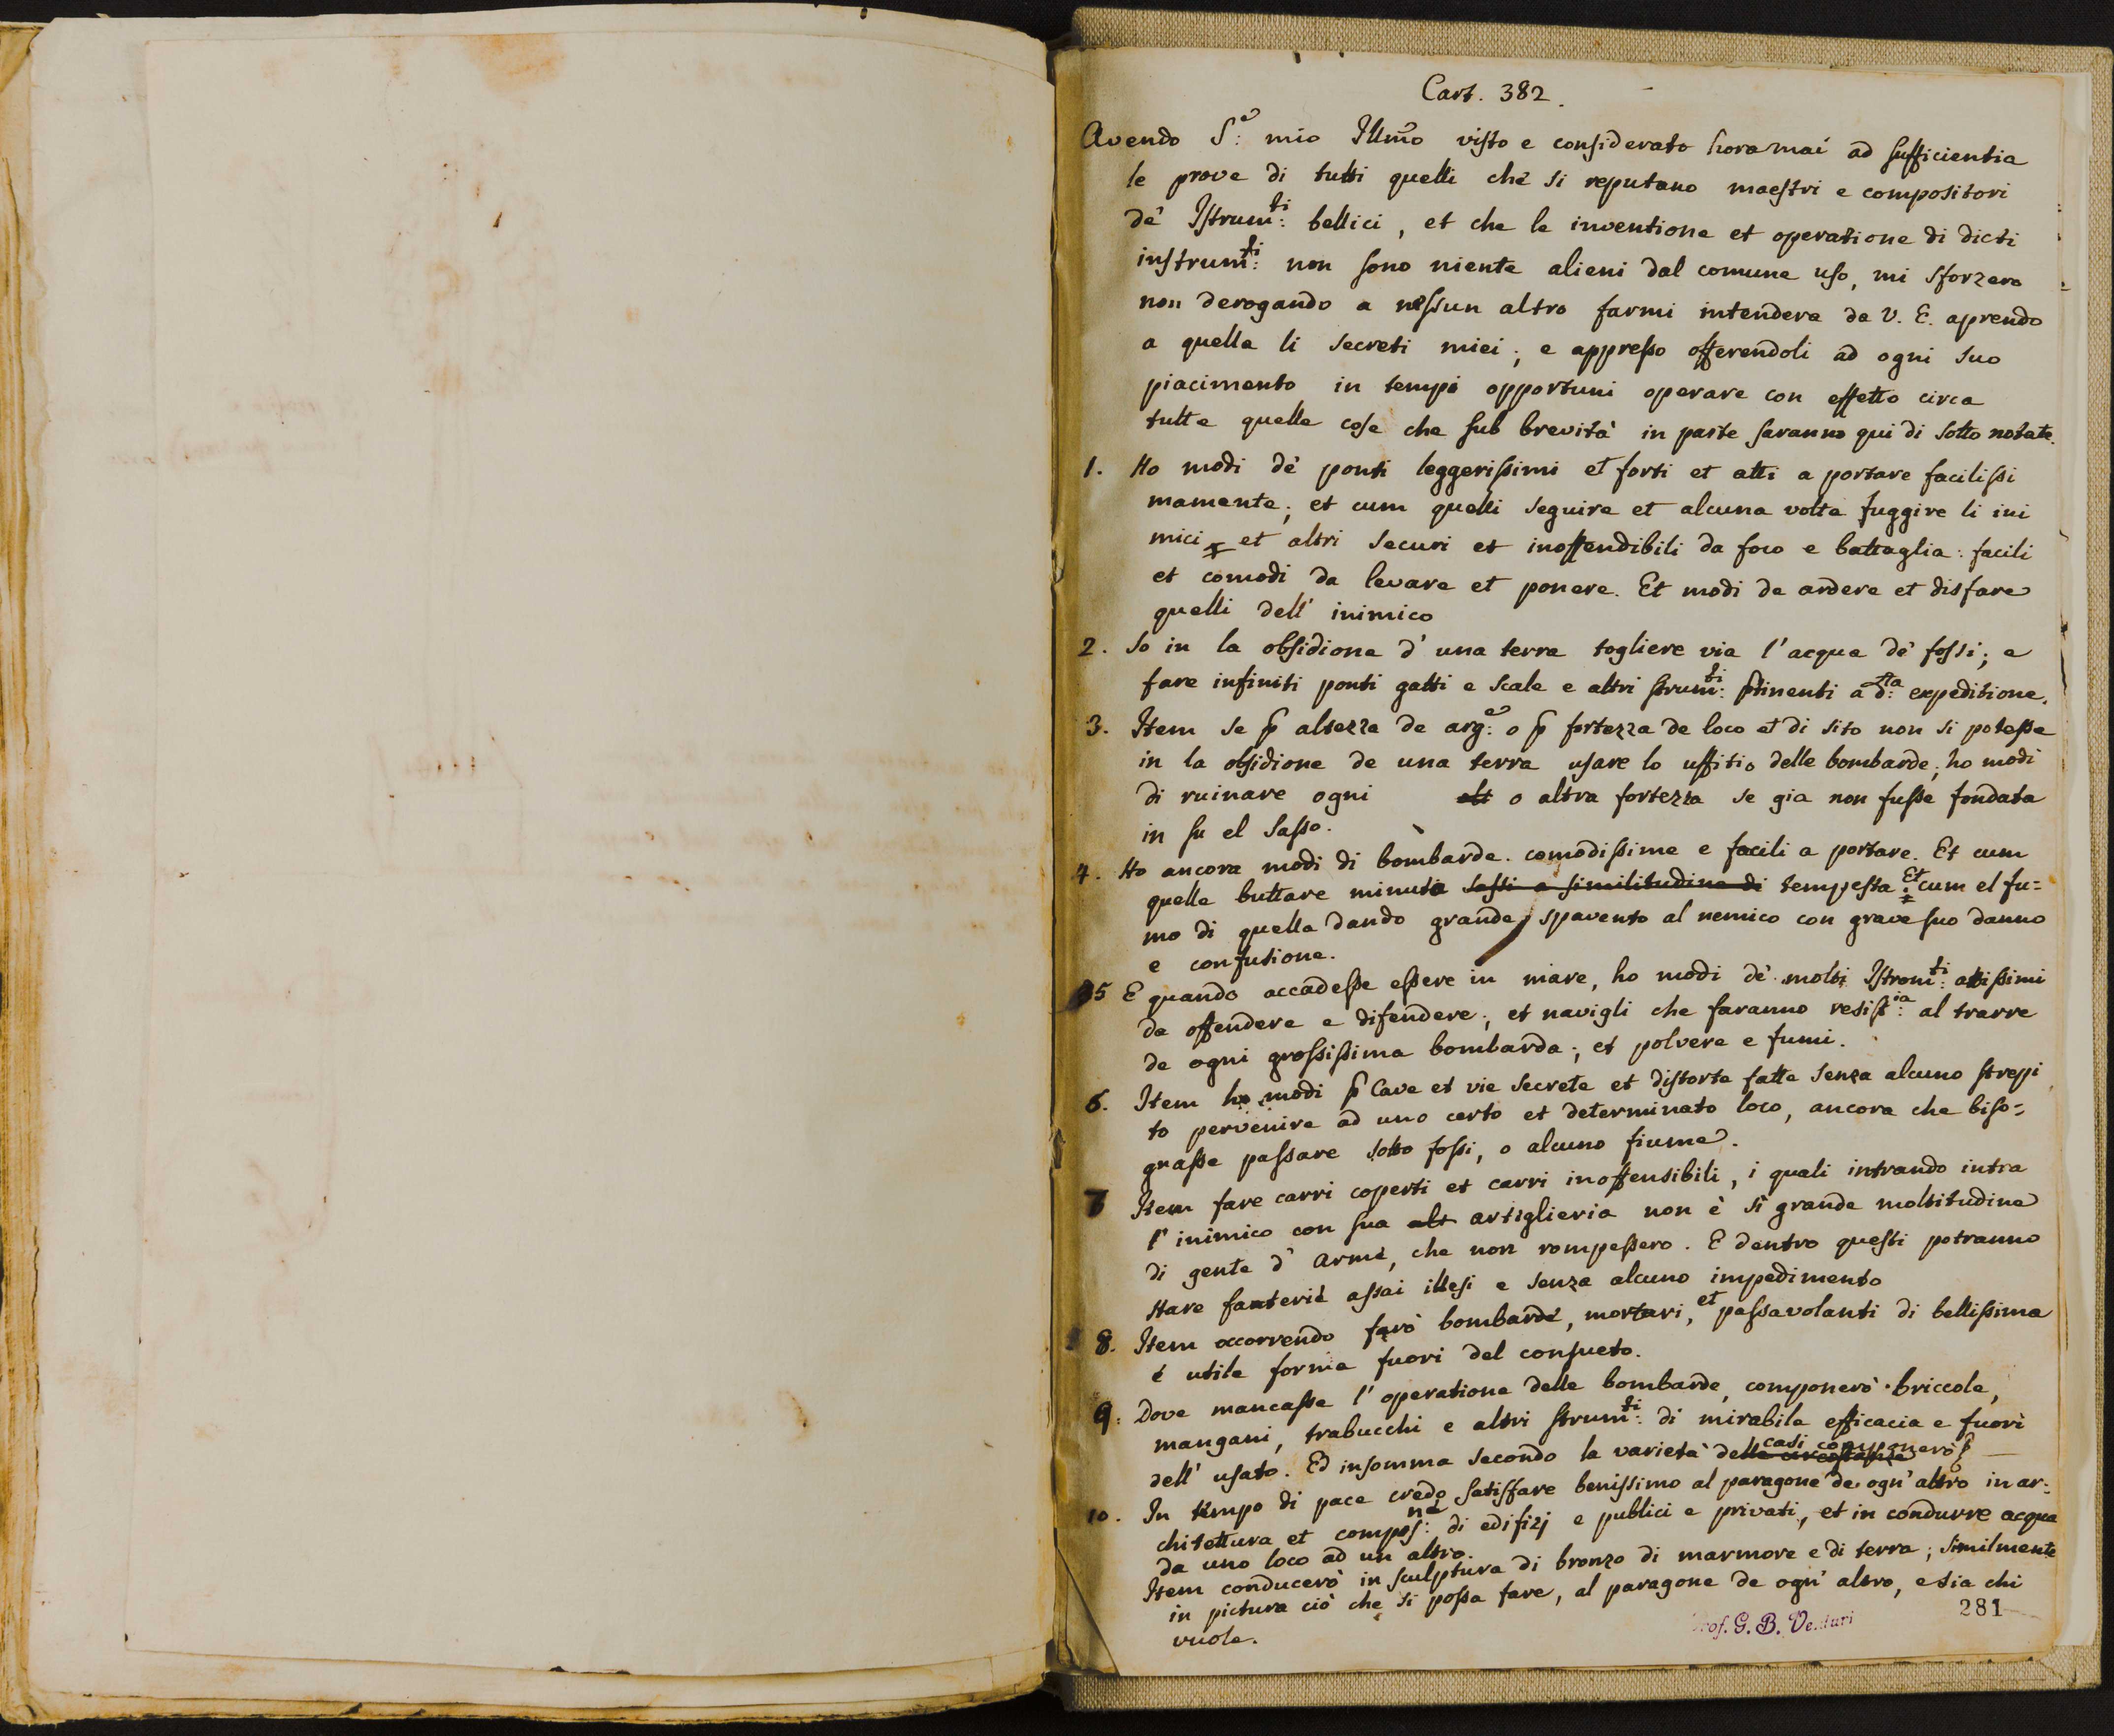 Cart. 382.
Avendo S:e mio Illmo visto e considerato horamai ad sufficientia
le prove di tutti quelli che si reputano maestri e compositori
de' Istrum:ti bellici, et che le inventione et operatione di dicti
instrum:ti non sono niente alieni dal comune uso, mi sforzero
non derogando a nessun altro farmi intendere da V. E. aprendo
a quella li secreti miei; e appresso offerendoli ad ogni suo
piacimento in tempi opportuni operare con effetto circa
tutte quelle cose che sub brevità in parte saranno qui di sotto notate.
1. Ho modi de' ponti leggerissimi et forti et atti a portare facilissi
mamente; et cum quelli seguire et alcuna volta fuggire li ini
mici et altri securi et inoffendibili da foco e battaglia: facili
et comodi da levare et ponere. Et modi de ardere et disfare
quelli dell' inimico
2. So in la obsidione d' una terra togliere via l' acqua de' fossi; e
fare infiniti ponti gatti e scale e altri strum:ti ptinenti a d:ta expeditione.
3. Item se p altezza de arg:e o p fortezza de loco et di sito non si potesse
in la obsidione de una terra usare lo uffitio delle bombarde; ho modi
di ruinare ogni alt o altra fortezza se gia non fusse fondata
in su el sasso.
4. Ho ancora modi di bombarde comodissime e facili a portare. Et cum
quelle buttare minuta sassi a similitudine di tempesta. Et cum el fu=
mo di quella dando grande spavento al nemico con grave suo danno
e confusione.
5 E quando accadesse essere in mare, ho modi de' molti Istrom:ti attissimi
da offendere e difendere; et navigli che faranno resist:ia al trarre
de ogni grossissima bombarda; et polvere e fumi.
6. Item ho modi p Cave et vie secrete et distorte fatte senza alcuno strepi
to pervenire ad uno certo et determinato loco, ancora che biso=
gnasse passare sotto fossi, o alcuno fiume.
7 Item fare carri coperti et carri inoffensibili, i quali intrando intra
l' inimico con sua alt artiglieria non è sì grande moltitudine
di gente d' arme, che non rompessero. E dentro questi potranno
stare fanterie assai illesi e senza alcuno impedimento
8. Item occorrendo farò bombarde, mortari, et passavolanti di bellissima
e utile forma fuori del consueto.
9. Dove mancasse l' operatione delle bombarde, componerò briccole,
mangani, trabucchi e altri strum:ti di mirabile efficacia e fuori
dell' usato. Ed insomma secondo la varietà delle circostanze casi componerò
10. In tempo di pace credo satisfare benissimo al paragone de ogn' altro in ar=
chitettura et compos:ne di edifizj e publici e privati, et in condurre acqua
da uno loco ad un altro.
Item conducerò in sculptura di bronzo di marmore e di terra; similmente
in pictura ciò che si possa fare, al paragone de ogn' altro, e sia chi
vuole.
Prof. G. B. Venturi
281